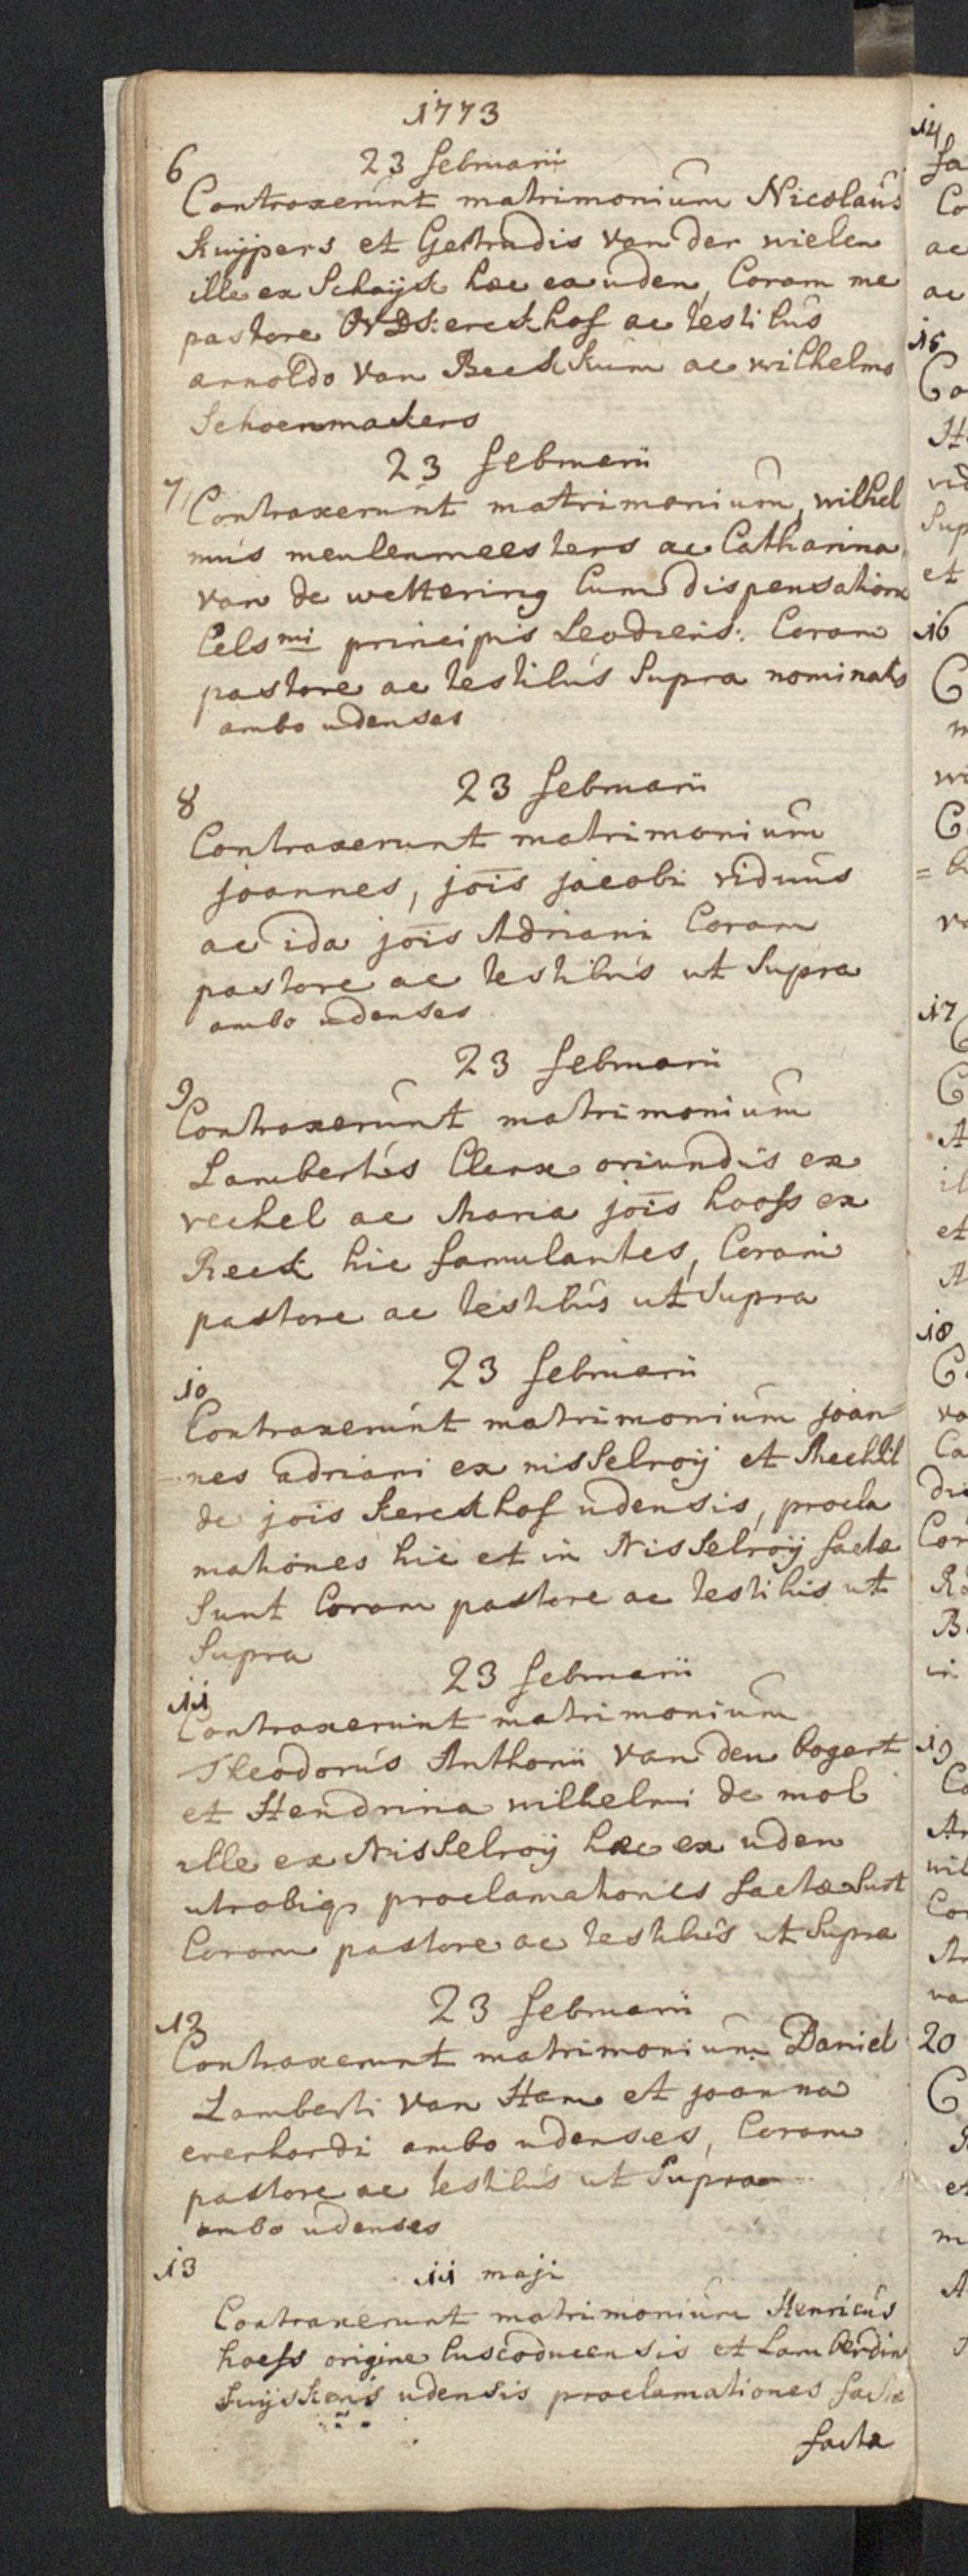 1773
6
23 februarii
Contraxerunt matrimonium Nicolaus
Kuijpers et Gertrudis van der wielen
ille ex Schaijk hæc ex uden, Coram me
pastore kerckhof ac testibus
arnoldo van Beeckkum ac wilhelmo
Schoenmackers
23 februarii
7
Contraxerunt matrimonium, wilhel
mus meulenmeesters ac Catharina
van de wettering Cum dispensatione
Cels mi principis Leodiens: Coram
pastore ac testibus Supra nominatis
ambo udenses
23 februarii
8
Contraxerunt matrimonium
joannes, jois jacobi viduus
ac ida jois Adriani Coram
pastore ac testibus ut Supra
ambo udenses
23 februarii
9
Contraxerunt matrimonium
Lambertus Clerx oriundis ex
vechel ac Maria jois hoofs ex
Reek hic famulantes, Coram
pastore ac testibus ut Supra
23 februarii
10
Contraxerunt matrimonium joan=
nes adriani ex nisselroij et Mechtil
de jois kerckhof udensis, procla
mationes hic et in Nisselroij factæ
Sunt Coram pastore ac testibus ut
Supra
23 februarii
11
Contraxerunt matrimonium
Theodorus Anthonii van den bogert
et Hendrina wilhelmi de mol
ille ex Nisselroij hæc ex uden
utrobiq proclamationes factæ Sunt
Coram pastore ac testibus ut Supra
23 februarii
12
Contraxerunt matrimonium Daniel
Lamberti van Ham et joanna
everhardi ambo udenses, Coram
pastore ac testibus ut Supra
ambo udenses
13
11 maji
Contraxerunt matrimonium Henricus
hoefs origine buscoducensis et Lamberdin
udensis proclamationes factæ
facta
14
15
16
17
18
19
20